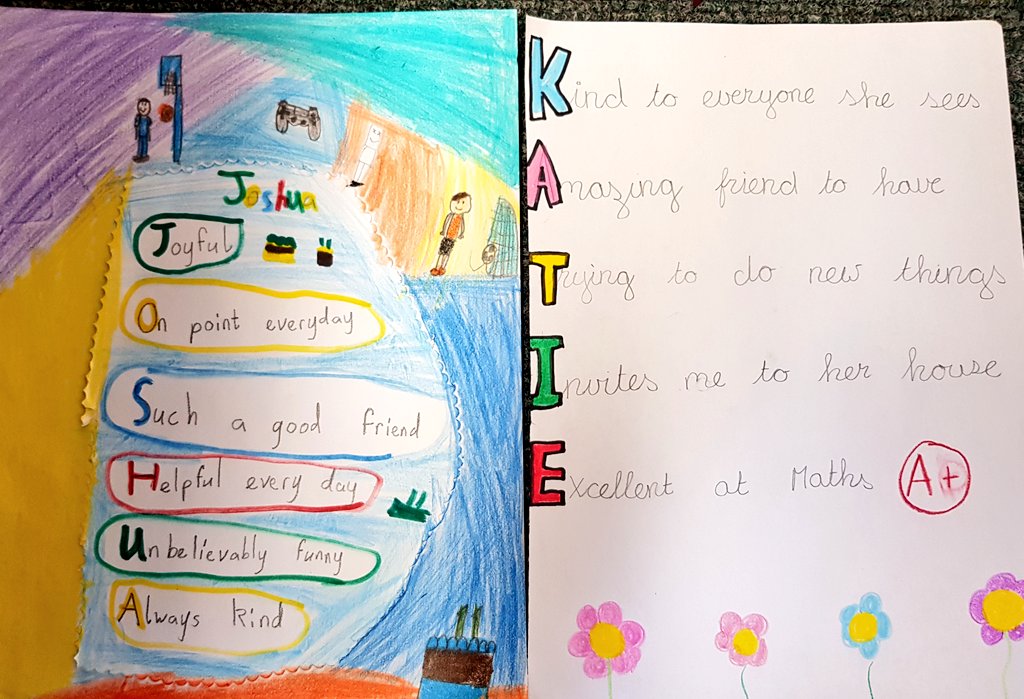 Joshua
Joyful
On point everyday
Such a good friend
Helpful every day
Unbelievably funny
Always kind
Kind to everyone she sees
Amazing friend to have
Trying to do new things
Invites me to her house
Excellent at Maths A+